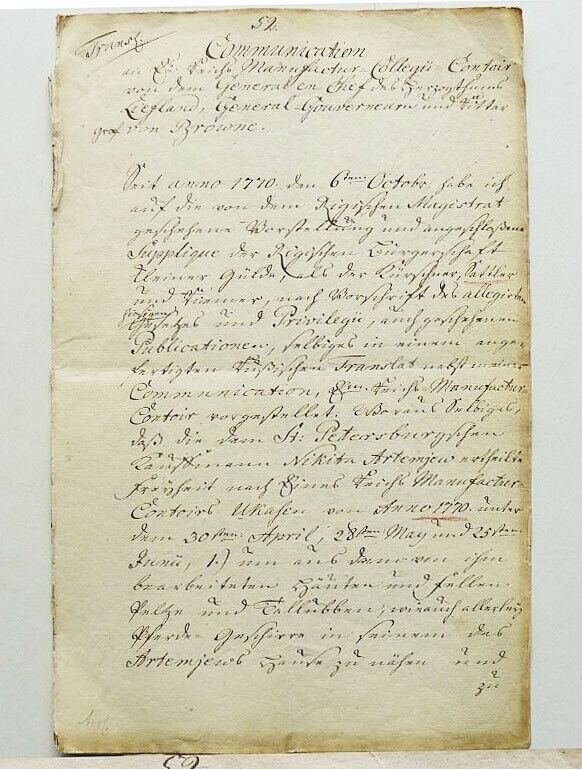 52.
Transl.
Communication
an Ein Reichs Manufactur-Collegii-Contoir
von dem General en Chef des Herzogthums
Liefland, General-Gouverneurn und Ritter
graf von Browne.
Seit anno 1770. den 6ten Octobr. habe ich
auf die von dem Rigischen Magistrat
geschehene Vorstellung und angeschloßene
Supplique der Rigischen Bürgerschaft
kleiner Gülde, als der Kürschner, Sattler
und Riemer, nach Vorschrift des allegirten
hiesigen
Gesetzes und Privilegii, auch geschehenen
Publicationen, selbiges in einem ange-
fertigten Rußischen Translat nebst meiner
Communication, Em. Reichs-Manufactur-
Contoir vorgestellet: Woraus Selbiges,
daß die dem St. Petersburgschen
Kauffmann Nikita Artemjew ertheilte
Freyheit nach Eines Reichs Manufactur-
Contoirs Ukasen von Anno 1770. unter
dem 30sten April, 28sten May und 25sten
Junii, 1.) um aus denen von ihm
bearbeiteten Häuten und Fellen
Peltze und Tallubben, wie auch allerley
Pferde-Geschirre in seinem des
Artemjews Hause zu nähen und
zu
52